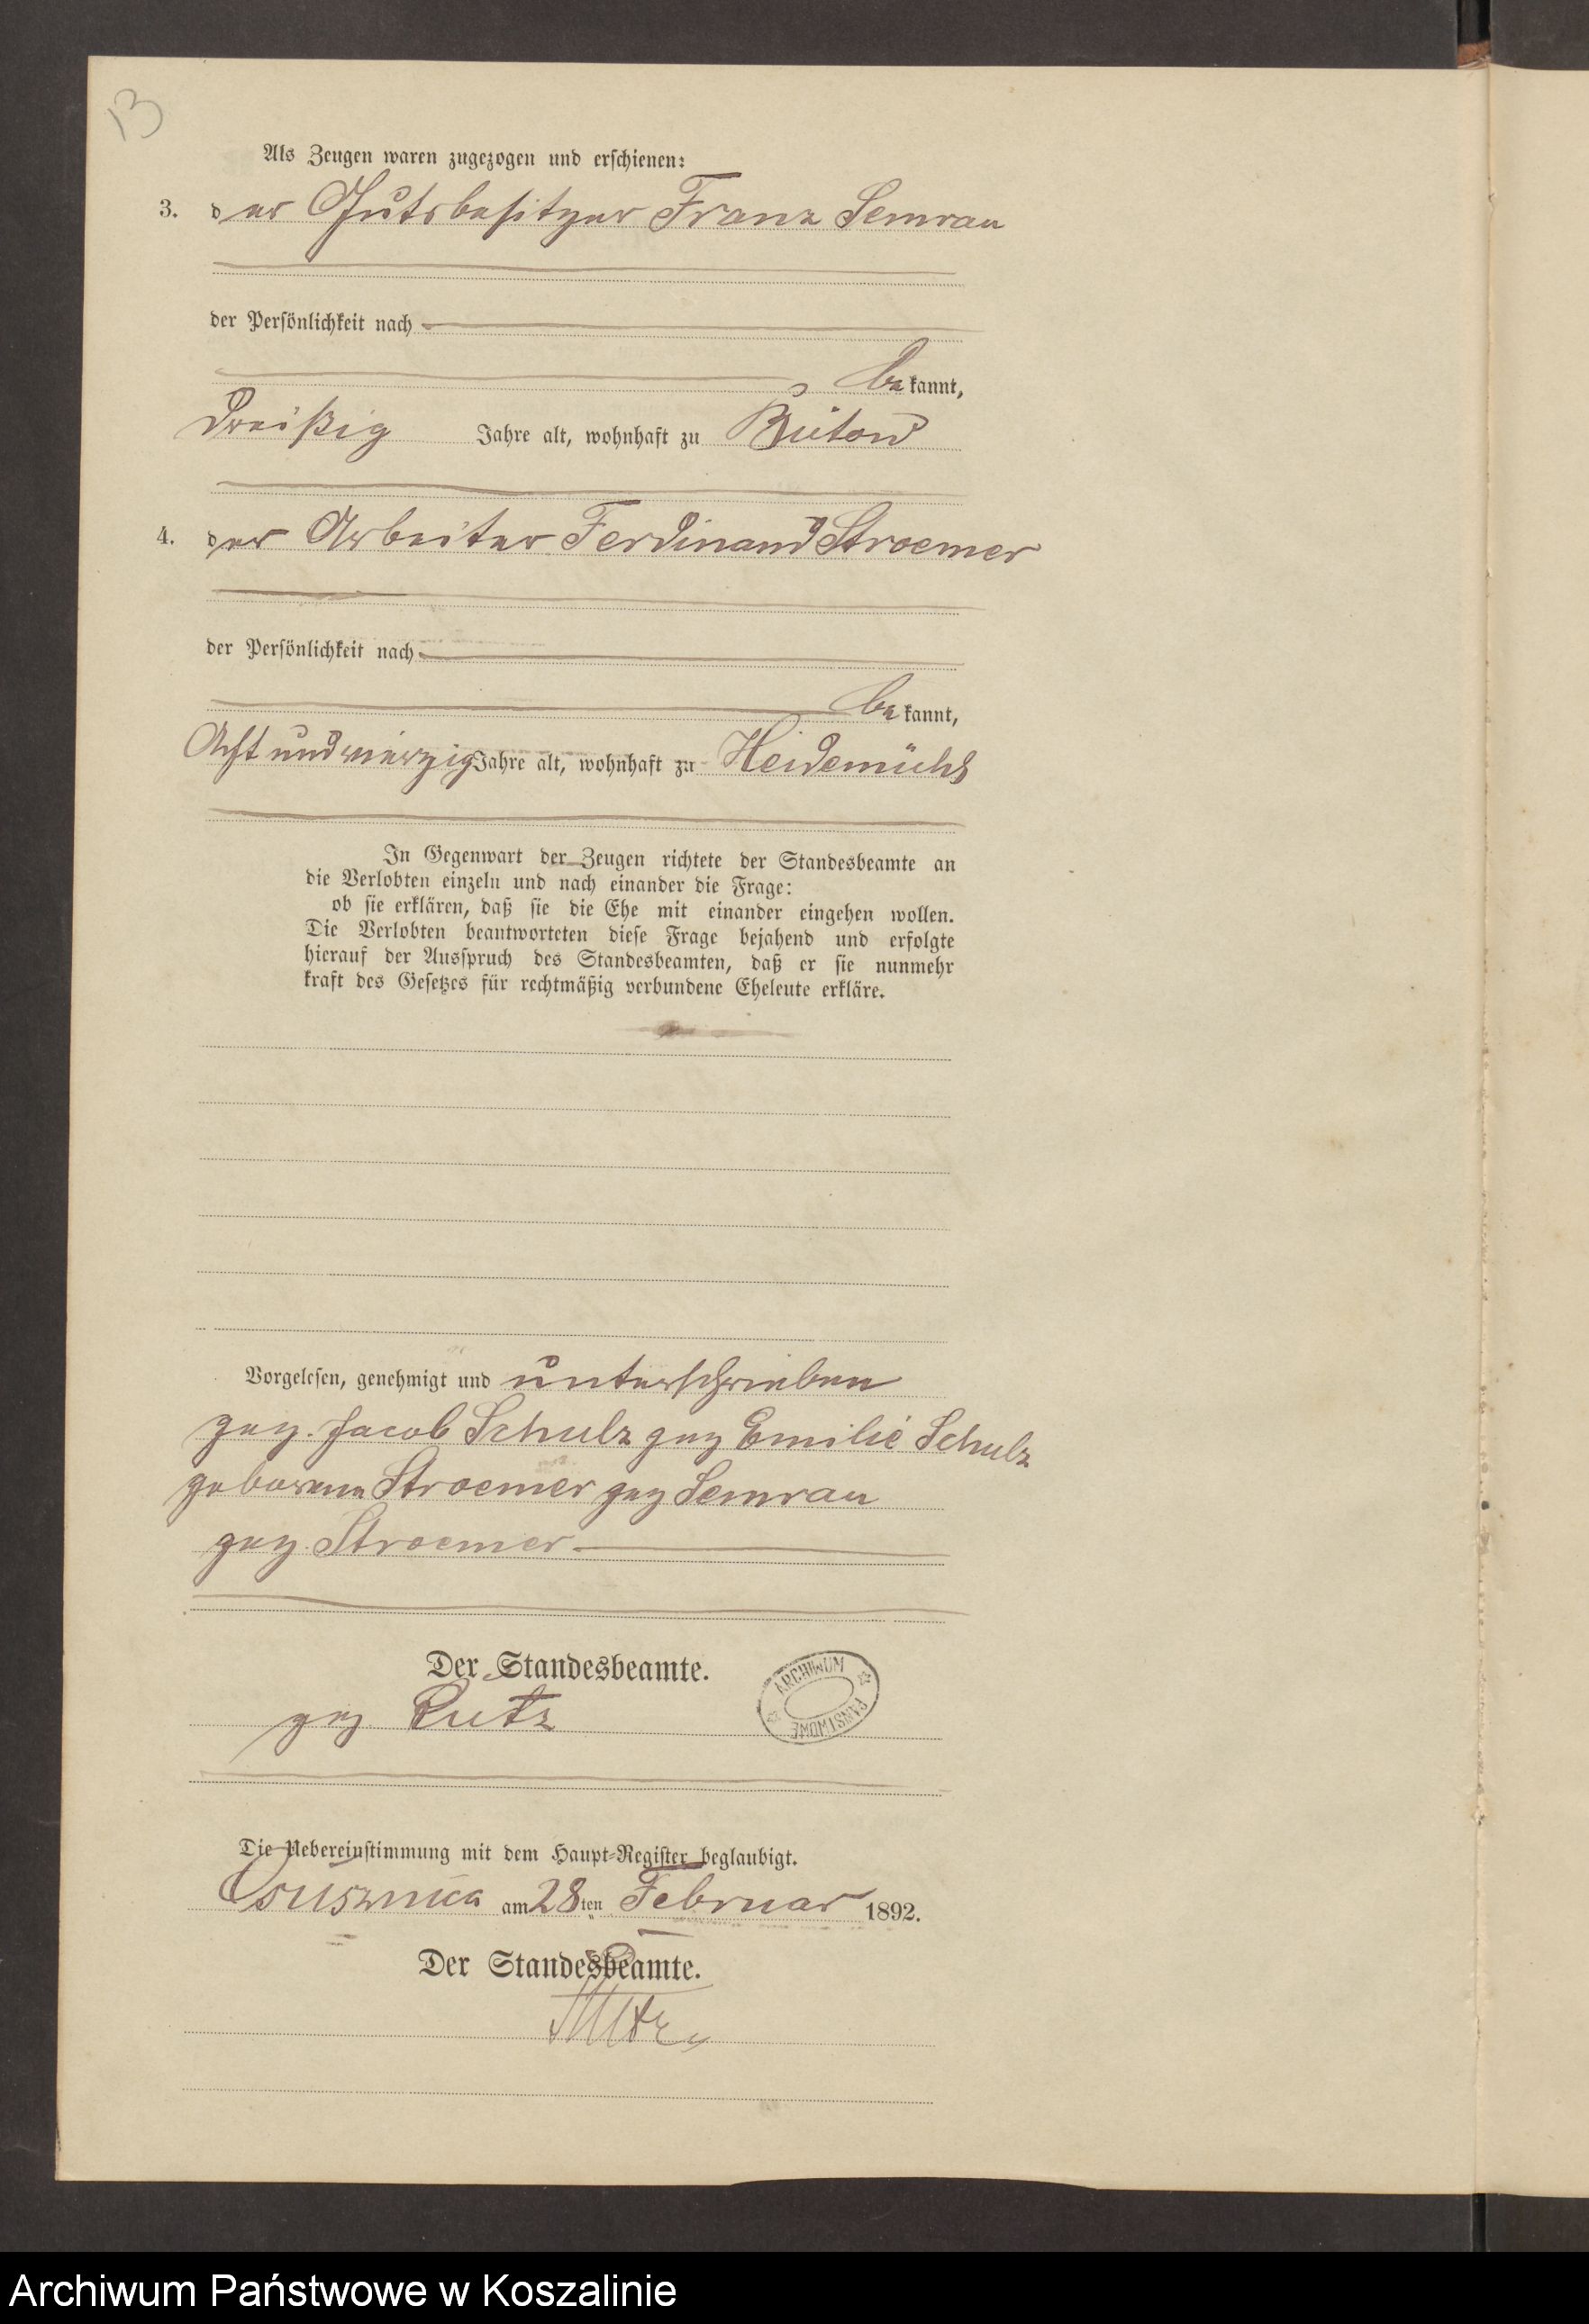 13
Als Zeugen waren zugezogen und erschienen:
3. der Gutsbesitzer Franz Semrau
der Persönlichkeit nach
bekannt,
dreißig Jahre alt, wohnhaft zu Bütow
4. der Arbeiter Ferdinand Stroemer
der Persönlichkeit nach
bekannt,
Achtundvierzig Jahre alt, wohnhaft zu Heidemühl
In Gegenwart der Zeugen richtete der Standesbeamte an
die Verlobten einzeln und nach einander die Frage:
ob sie erklären, daß sie die Ehe mit einander eingehen wollen.
Die Verlobten beantworteten diese Frage bejahend und erfolgte
hierauf der Ausspruch des Standesbeamten, daß er sie nunmehr
kraft des Gesetzes für rechtmäßig verbundene Eheleute erkläre.
Vorgelesen, genehmigt und unterschrieben
gez. Jacob Schulz gez Emilie Schulz
geborene Stroemer gez Semrau
gez. Stroemer
Der Standesbeamte.
gez Rutz
ARCHIWUM PAŃSTWOWE
Die Uebereinstimmung mit dem Haupt-Register beglaubigt.
am 28ten Februar 1892.
Der Standesbeamte.
Rutz
Archiwum Państwowe w Koszalinie